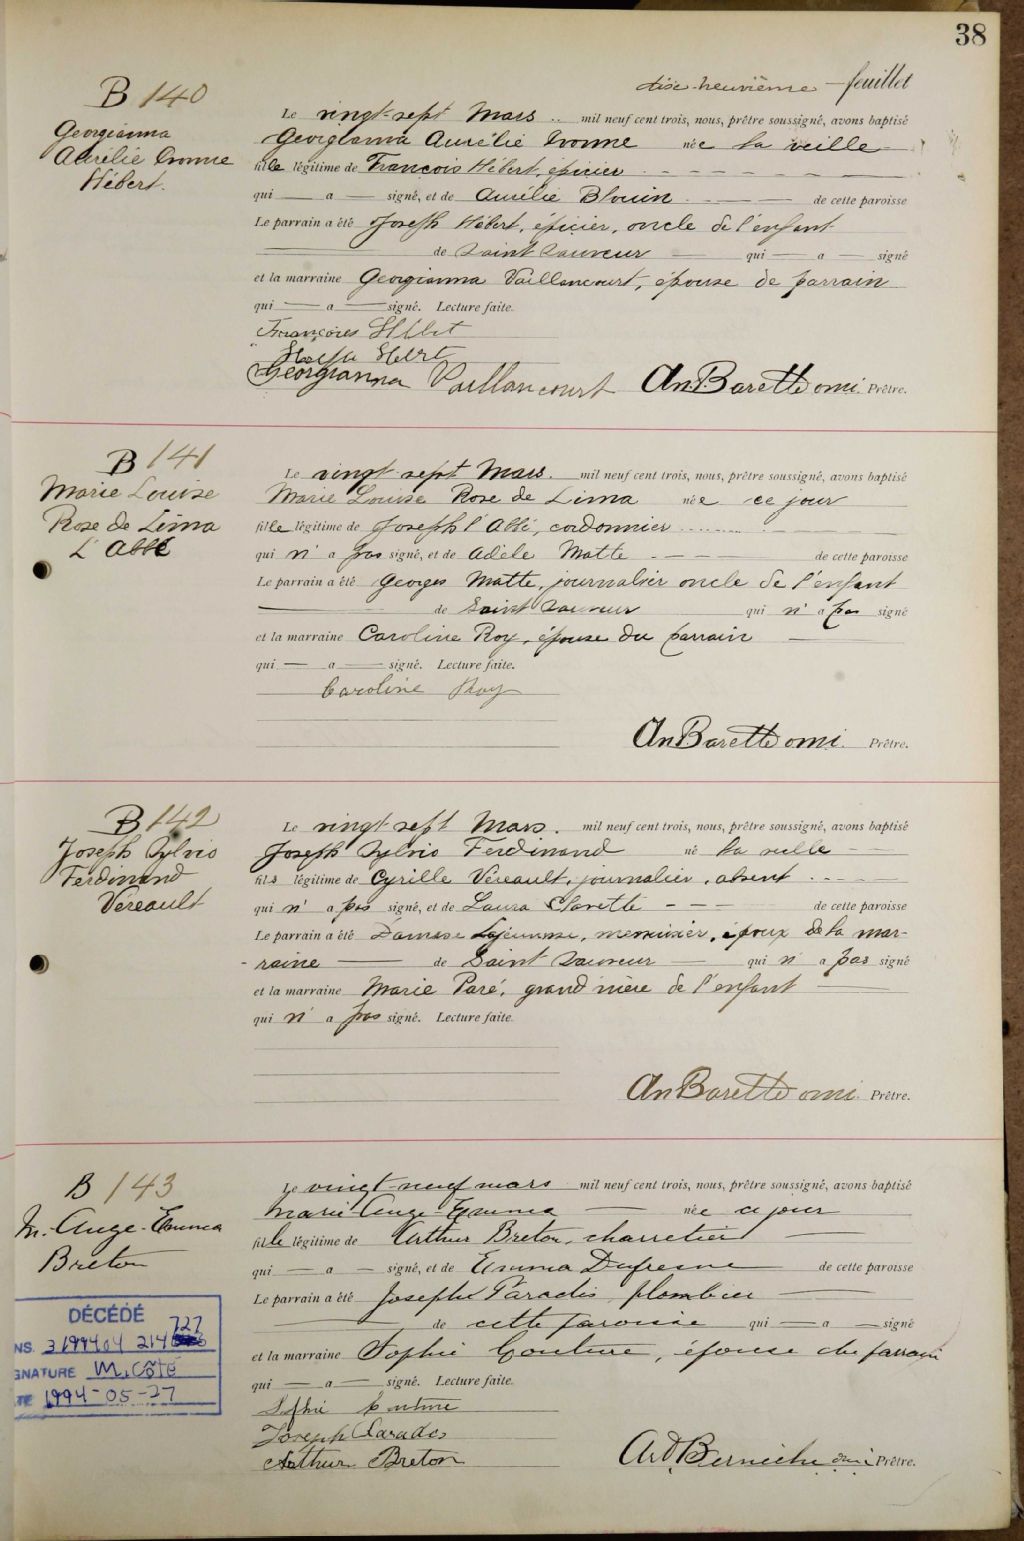 38
dixe-neuvième feuillet
B 140
Georgianna
Aurélie Ivonne
Hébert.
Le vingt-sept Mars .. mil neuf cent trois, nous, prêtre soussigné, avons baptisé
Georgianna Aurélie Ivonne née la veille
fille légitime de François Hébert, épicier
qui — a — signé, et de Aurélie Blouin de cette paroisse
Le parrain a été Joseph Hébert, épicier, oncle de l'enfant
de Saint Sauveur — qui — a — signé
et la marraine Georgianna Vaillancourt, épouse de parrain
qui — a — signé. Lecture faite.
François Hébert
Georgianna Vaillancourt An. Barette omi. Prêtre.
B 141
Marie Louise
Rose de Lima
L'Abbé
Le vingt-sept Mars. mil neuf cent trois, nous, prêtre soussigné, avons baptisé
Marie Louise Rose de Lima née ce jour
fille légitime de Joseph l'Abbé, cordonnier
qui n' a pas signé, et de Adèle Matte de cette paroisse
Le parrain a été Georges Matte, journalier oncle de l'enfant
de Saint Sauveur qui n' a pas signé
et la marraine Caroline Roy, épouse du parrain
qui — a — signé. Lecture faite.
Caroline Roy
An Barette omi. Prêtre.
B 142
Joseph Sylvio
Ferdinand
Véreault
Le vingt-sept Mars. mil neuf cent trois, nous, prêtre soussigné, avons baptisé
Joseph Sylvio Ferdinand né la veille
fils légitime de Cyrille Véreault, journalier, absent
qui n' a pas signé, et de Laura Clavette de cette paroisse
Le parrain a été Damase Lajeunesse, menuisier, époux de la mar-
-raine — de Saint Sauveur — qui n' a pas signé
et la marraine Marie Paré, grand'mère de l'enfant
qui n' a pas signé. Lecture faite.
An Barette omi. Prêtre.
B 143
M.-Ange-Emma
Breton
Le vingt-neuf mars mil neuf cent trois, nous, prêtre soussigné, avons baptisé
Marie Ange-Emma — née ce jour
fille légitime de Arthur Breton, charretier
qui — a — signé, et de Emma Dufresne de cette paroisse
Le parrain a été Joseph Paradis, plombier
de cette paroisse qui — a — signé
et la marraine Sophie Couture, épouse du parrain
qui — a — signé. Lecture faite.
Sophie Couture
Joseph Paradis
Arthur Breton
Prêtre.
DÉCÉDÉ
727
NS. 3199404 214
GNATURE M. Côté
TE 1994-05-27